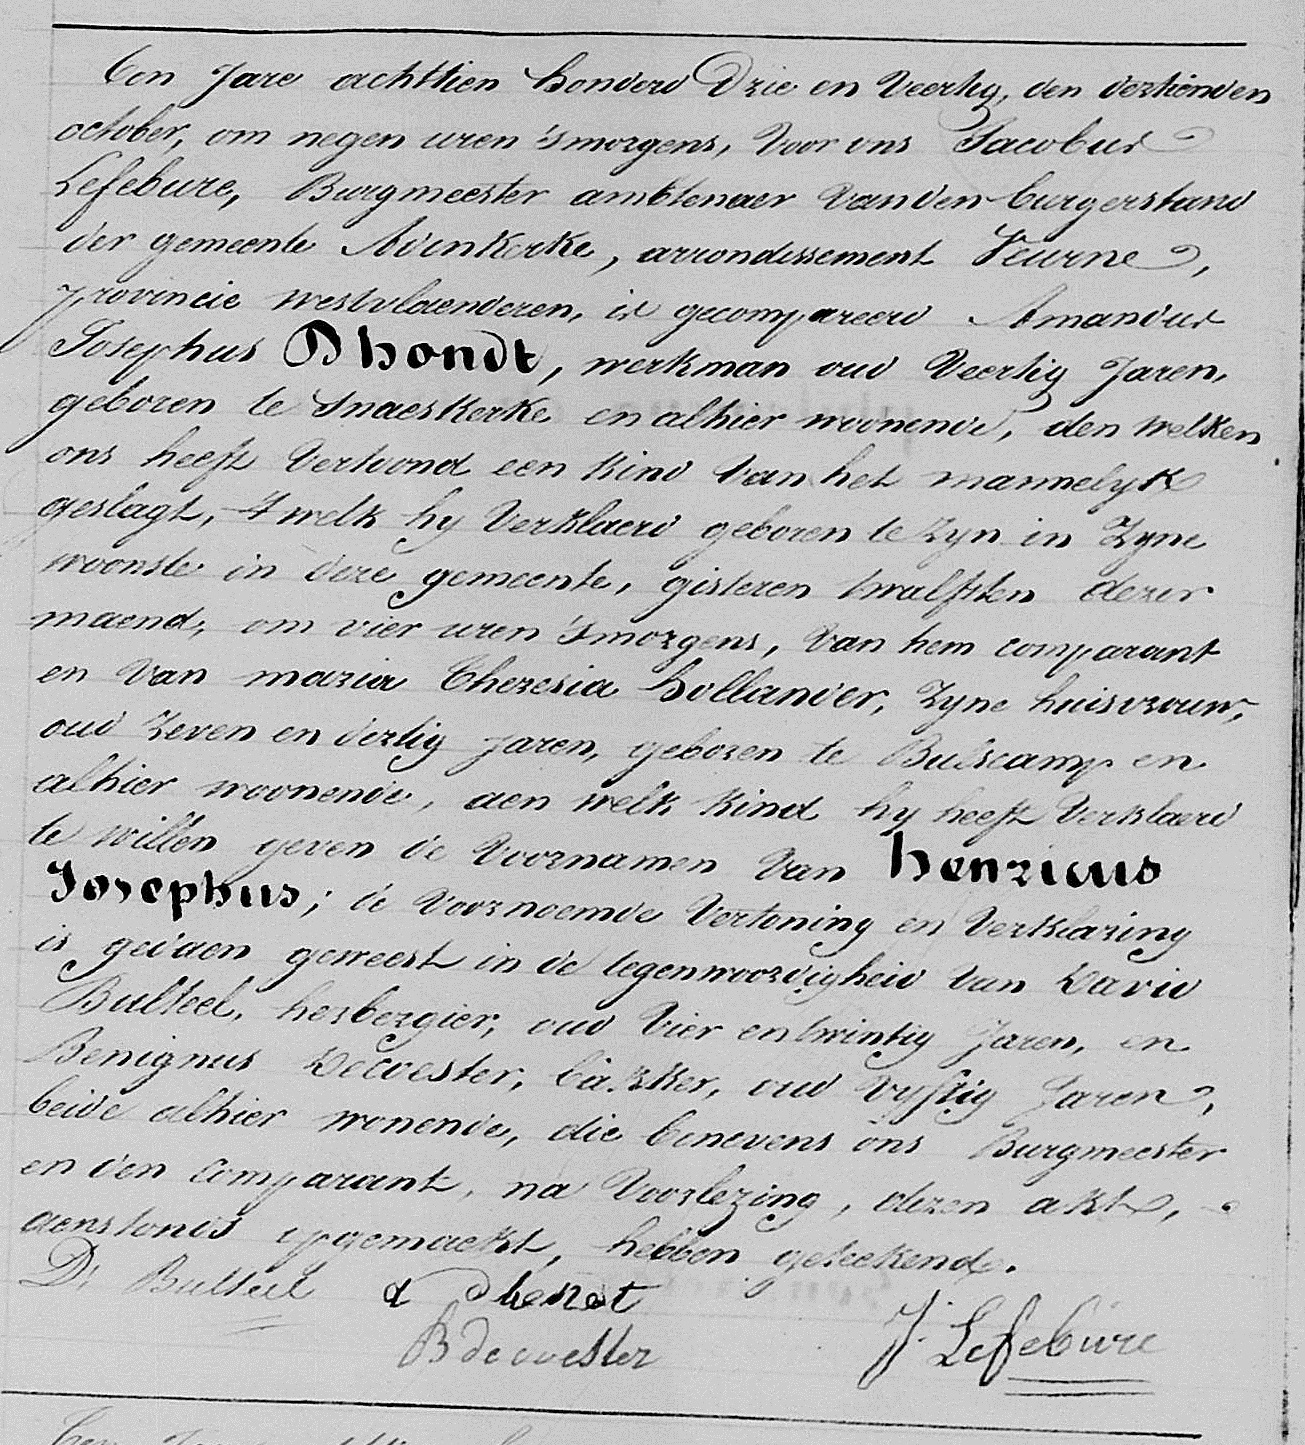 Ten Jare achttien honderd Drie en Veertig, den dertienden
october, om negen uren 'smorgens, Voor ons Jacobus
Lefebure, Burgmeester ambtenaer Van den burgerstand
der gemeente Adinkerke, arrondissement Veurne,
provincie westvlaenderen, is gecompareerd Amandus
Josephus Dhondt, werkman oud Veertig Jaren,
geboren te Snaeskerke en alhier woonende, den welken
ons heeft Vertoond een kind Van het mannelyk
geslagt, 't welk hy Verklaerd geboren te Zyn in Zyne
woonste in deze gemeente, gisteren twalfsten dezer
maend, om vier uren 'smorgens, Van hem comparant
en Van maria Theresia hollander, Zyne huisvrouw,
oud Zeven en dertig jaren, geboren te Bulscamp en
alhier woonende, aen welk kind hy heeft Verklaerd
te willen geven de Voornamen Van henricus
Josephus; de Voornoemde Vertoning en Verklaring
is gedaen geweest in de tegenwoordigheid Van David
Bulteel, herbergier, oud Vier en twintig Jaren, en
Benignus Decoester, bakker, oud Vyftig Jaren,
beide alhier wonende, die benevens ons Burgmeester
en den comparant, na Voorlezing, dezen akt,
aenstonds opgemaekt, hebben geteekend.
D. Bulteel a dhondt
B decoester J. Lefebure